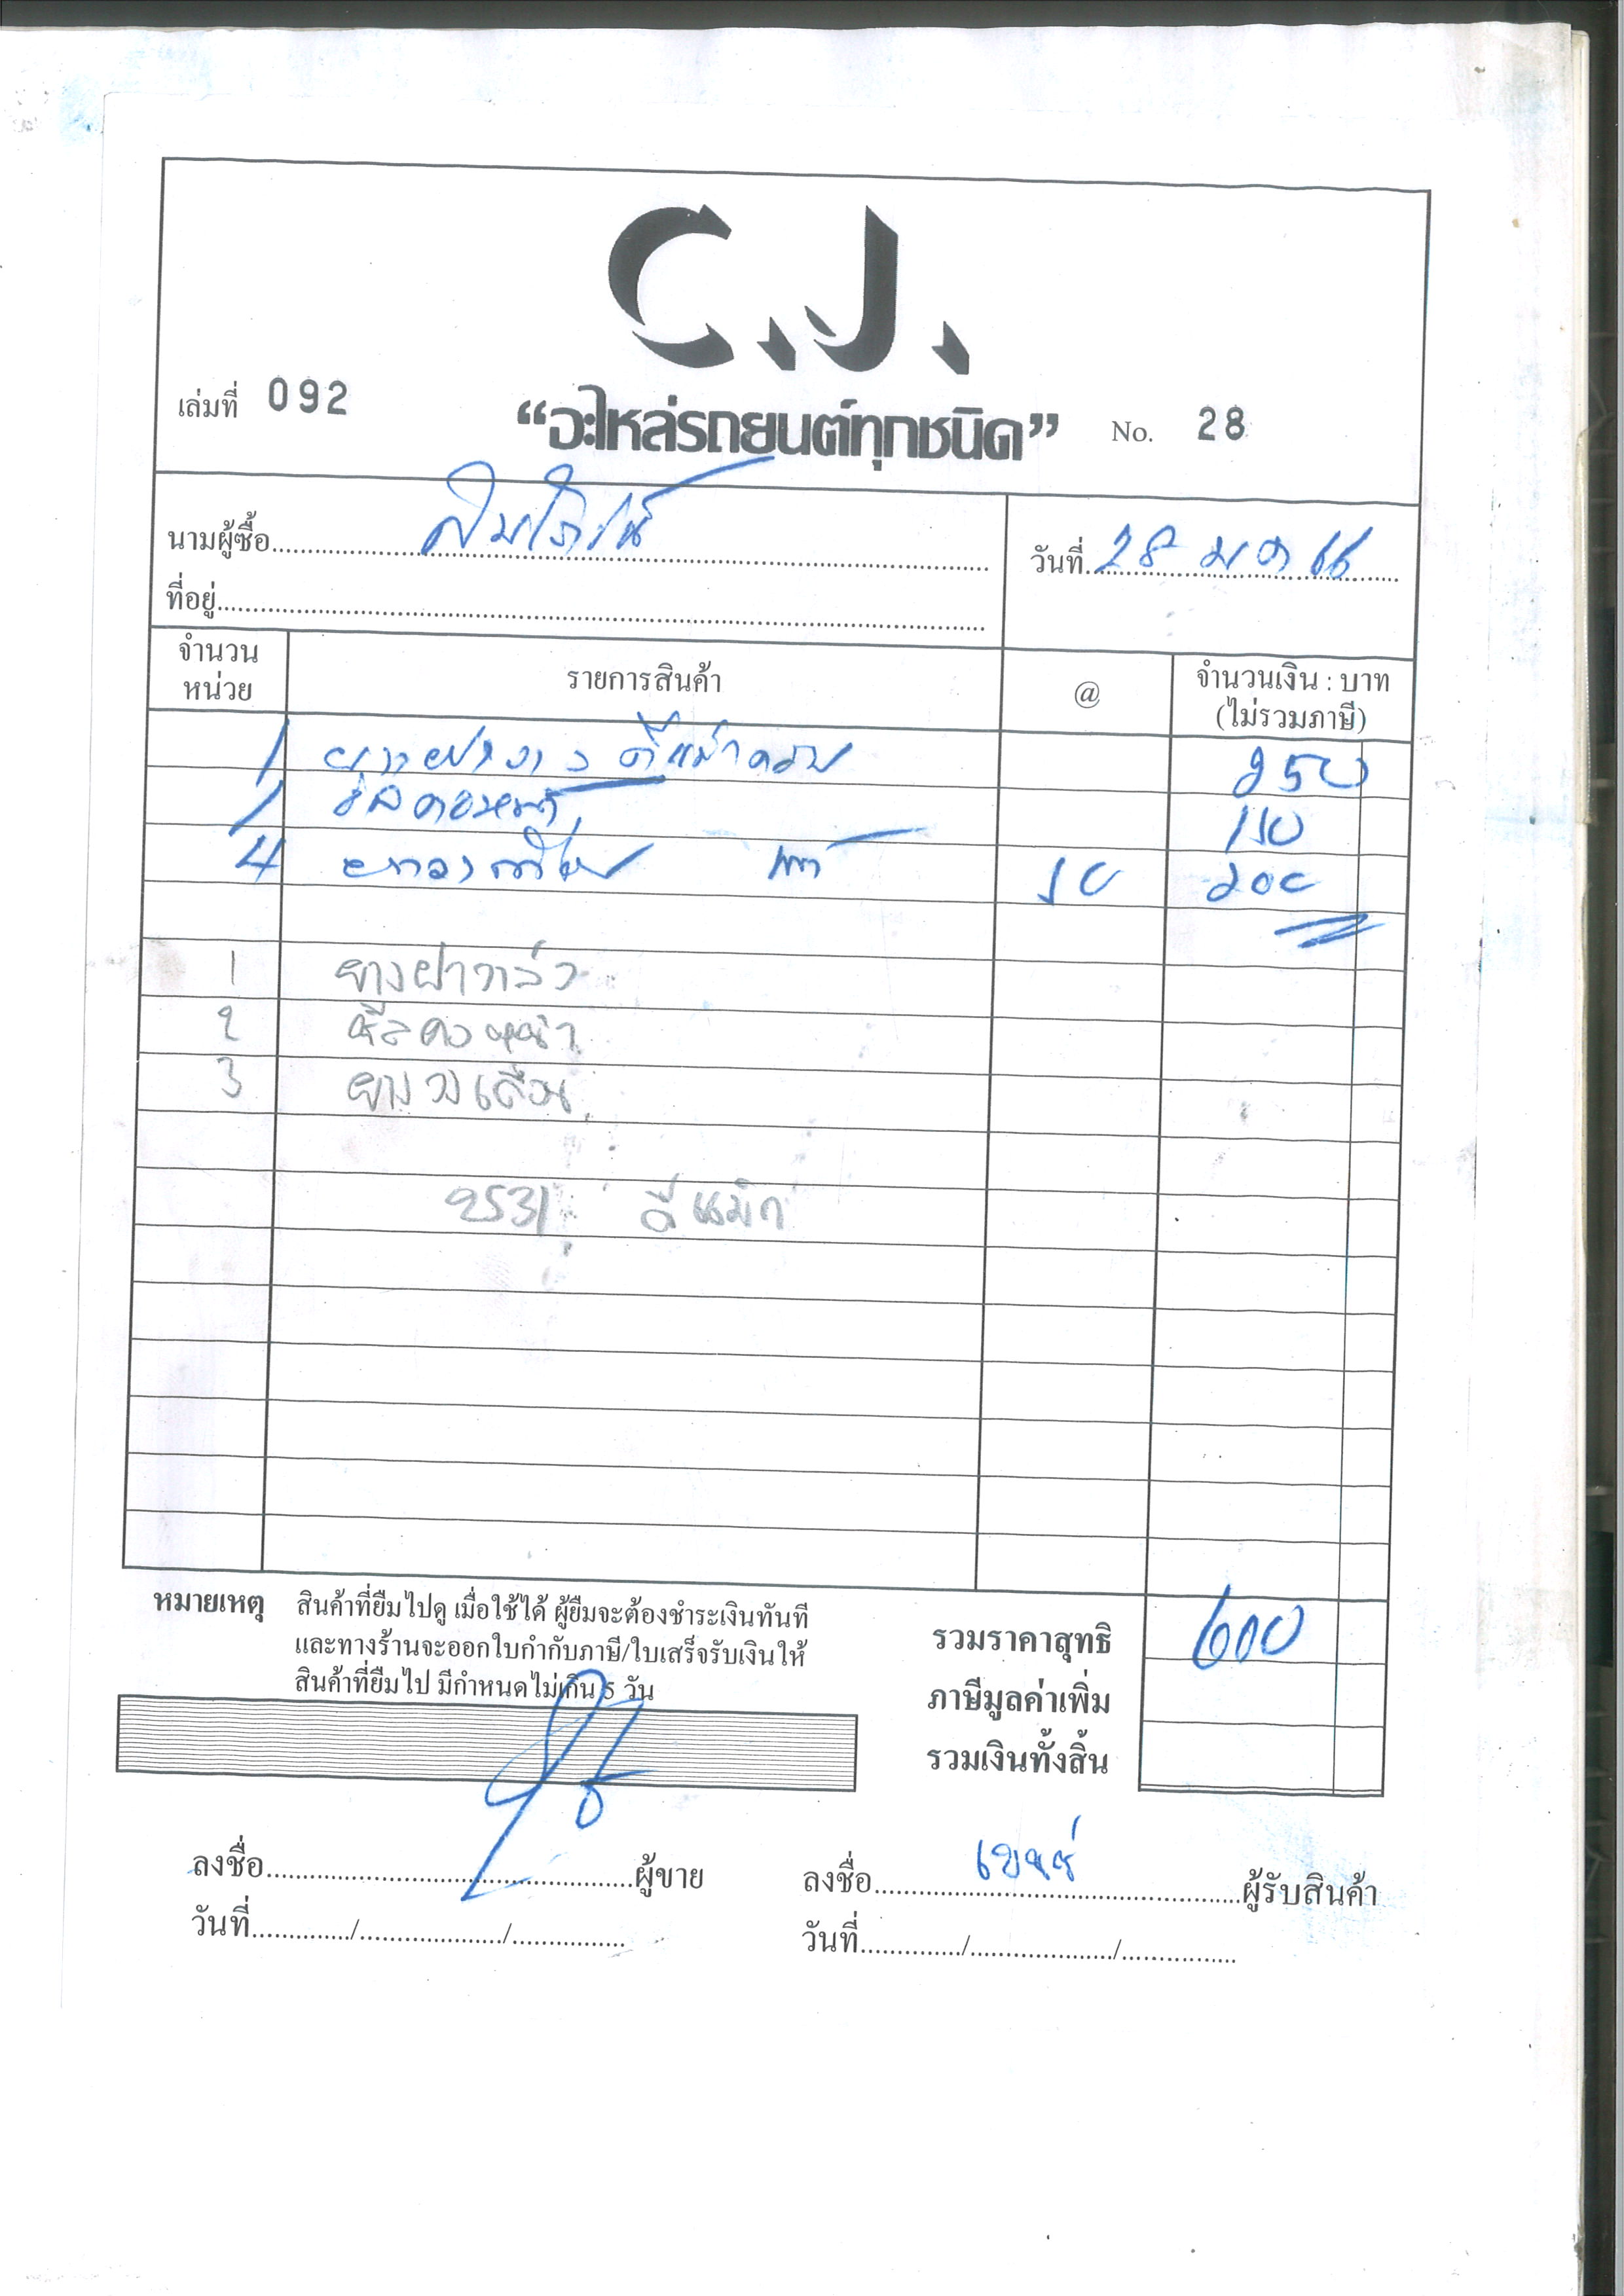 C.J.
เล่มที่ 092 “อะไหล่รถยนต์ทุกชนิด” No. 28
นามผู้ซื้อ
วันที่ 28 มค 66
ที่อยู่
จำนวน หน่วย รายการสินค้า @ จำนวนเงิน : บาท (ไม่รวมภาษี)
1 ดีแม็ก 250
1 ซีลคอหน้า 150
4 แท้ 50 200
1 ยางฝาวาล์ว
2 ซีลคอหน้า
3 ยาง
2531 ดีแม็ก
หมายเหตุ สินค้าที่ยืมไปดู เมื่อใช้ได้ ผู้ยืมจะต้องชำระเงินทันที
และทางร้านจะออกใบกำกับภาษี/ใบเสร็จรับเงินให้
สินค้าที่ยืมไป มีกำหนดไม่เกิน 5 วัน
รวมราคาสุทธิ 600
ภาษีมูลค่าเพิ่ม
รวมเงินทั้งสิ้น
ลงชื่อ ผู้ขาย ลงชื่อ ผู้รับสินค้า
วันที่ / / วันที่ / /